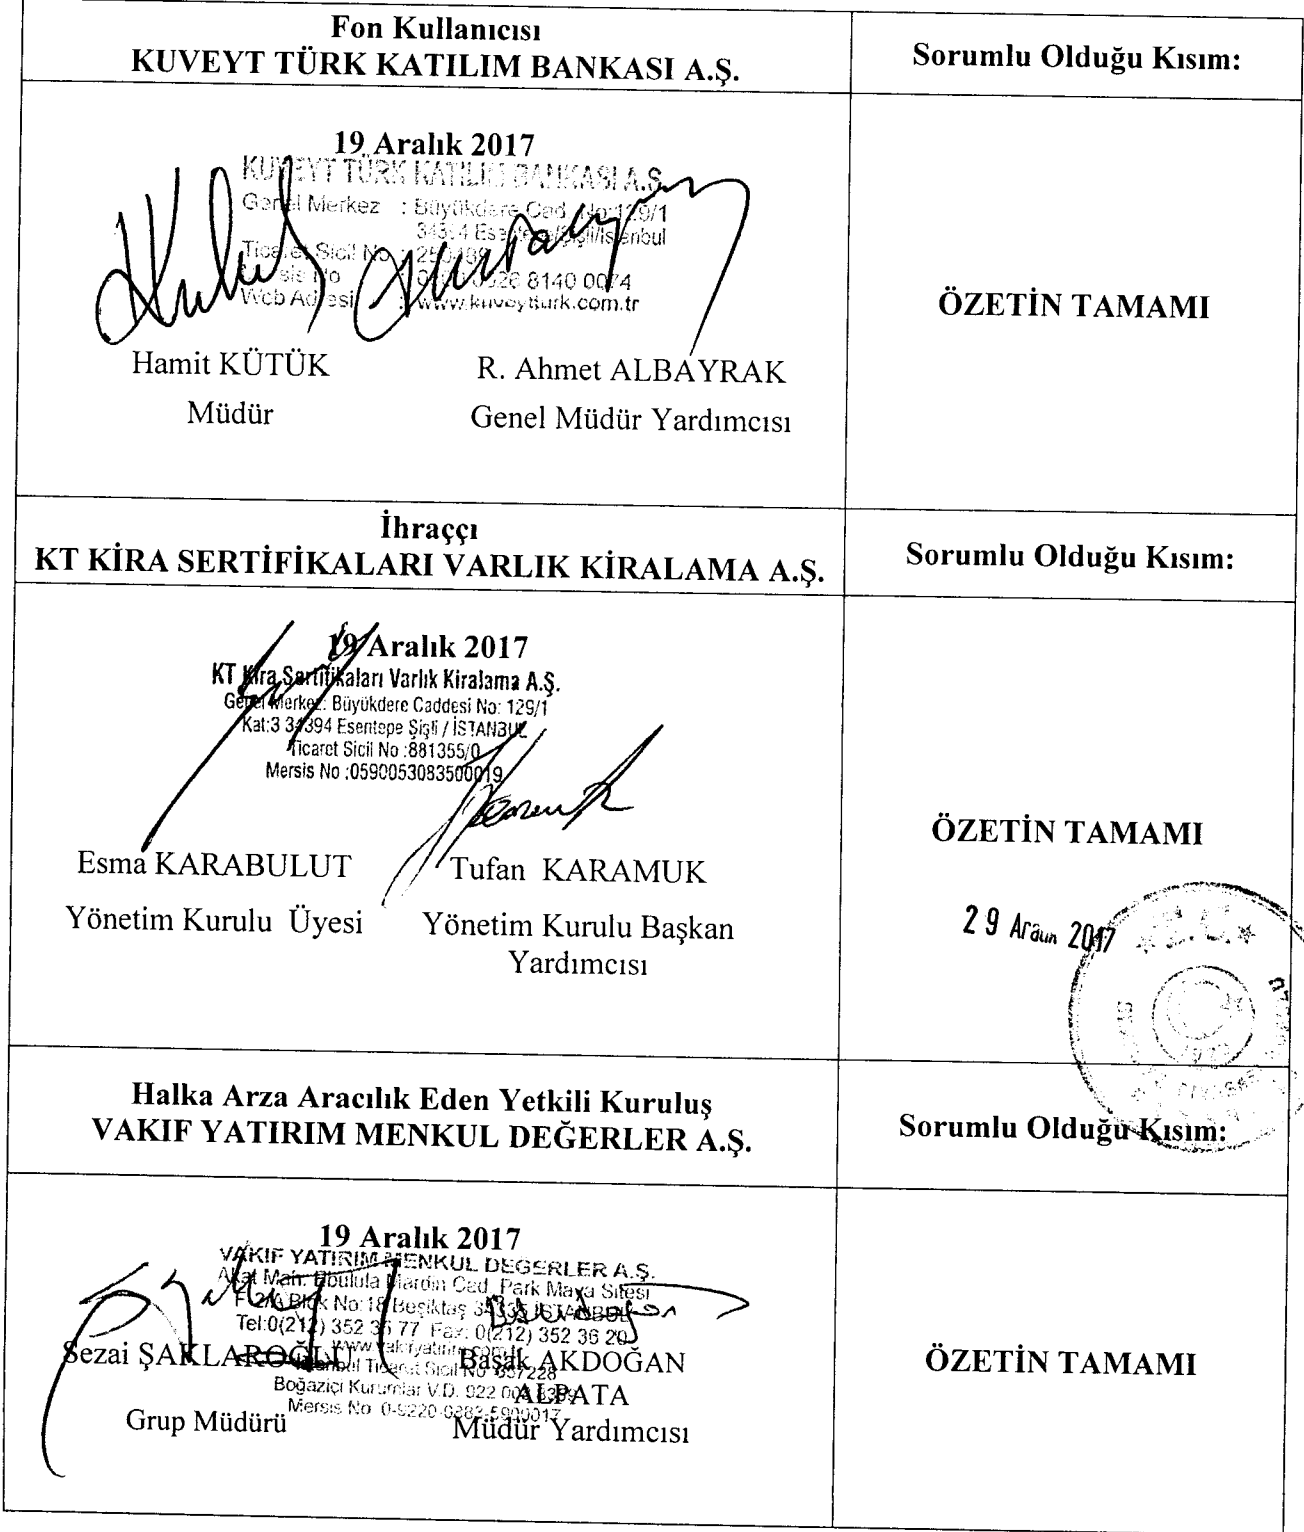 Fon Kullanıcısı
KUVEYT TÜRK KATILIM BANKASI A.Ş.
Sorumlu Olduğu Kısım:
19 Aralık 2017
KUVEYT TÜRK KATILIM BANKASI A.Ş.
Genel Merkez : Büyükdere Cad. No:129/1
Esentepe/Şişli/İstanbul
Ticaret Sicil No :
8140 0074
Web Adresi : www.kuveytturk.com.tr
Hamit KÜTÜK
R. Ahmet ALBAYRAK
Müdür
Genel Müdür Yardımcısı
ÖZETİN TAMAMI
İhraççı
KT KİRA SERTİFİKALARI VARLIK KİRALAMA A.Ş.
Sorumlu Olduğu Kısım:
19 Aralık 2017
KT Kira Sertifikaları Varlık Kiralama A.Ş.
Genel Merkez: Büyükdere Caddesi No: 129/1
Kat:3 34394 Esentepe Şişli / İSTANBUL
Ticaret Sicil No :881355/0
Mersis No :0590053083500019
Esma KARABULUT
Tufan KARAMUK
Yönetim Kurulu Üyesi
Yönetim Kurulu Başkan
Yardımcısı
ÖZETİN TAMAMI
29 Aralık 2017
Halka Arza Aracılık Eden Yetkili Kuruluş
VAKIF YATIRIM MENKUL DEĞERLER A.Ş.
Sorumlu Olduğu Kısım:
19 Aralık 2017
VAKIF YATIRIM MENKUL DEGERLER A.Ş.
Akat Mah. Ebulula Mardin Cad. Park Maya Sitesi
F-2/A Blok No:18 Beşiktaş 34335 İSTANBUL
Tel:0(212) 352 35 77 Fax: 0(212) 352 36 20
Ticaret Sicil No
Boğaziçi Kurumlar V.D. 922
Mersis No:
Sezai ŞAKLAROĞLU
Başak AKDOĞAN
ALPATA
Grup Müdürü
Müdür Yardımcısı
ÖZETİN TAMAMI